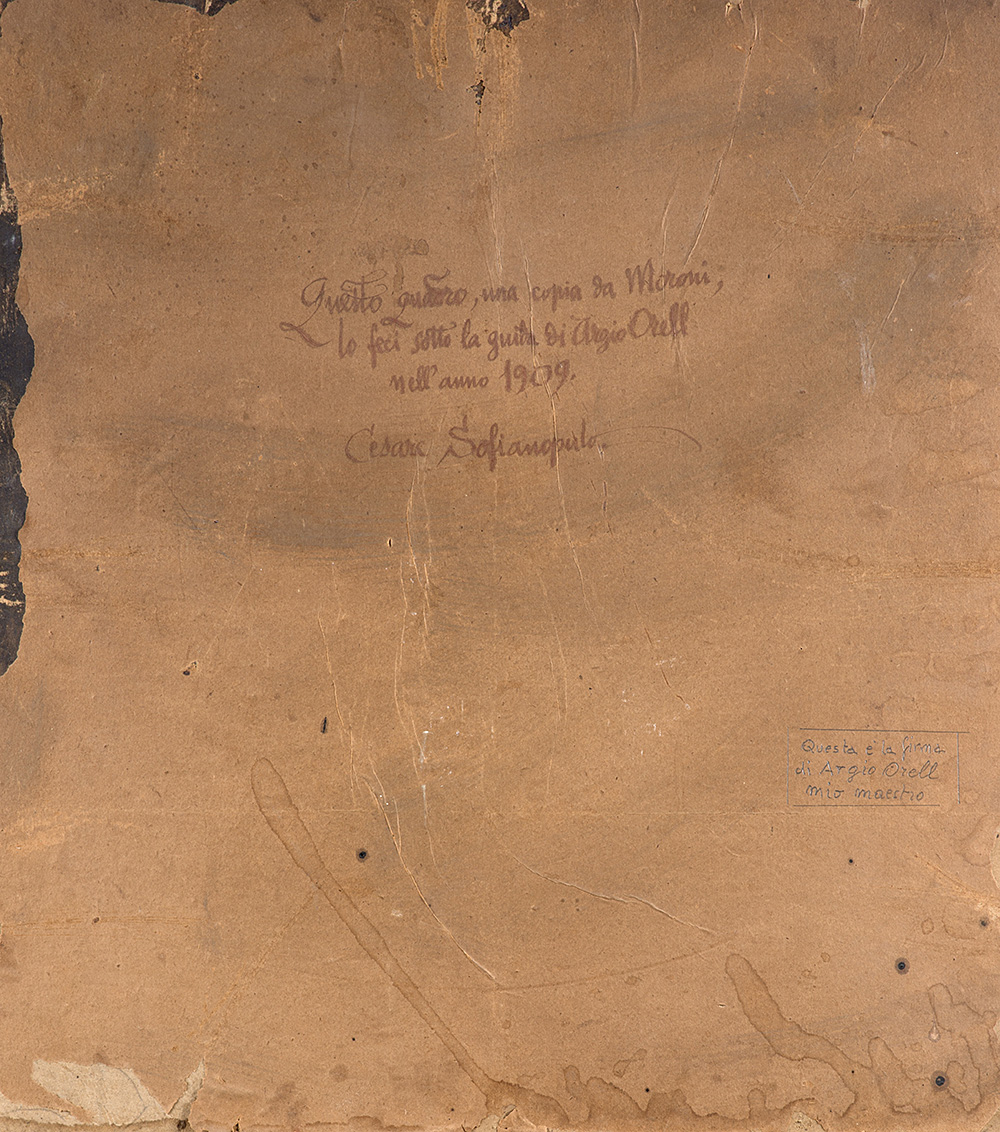 Questo quadro, una copia da Moroni,
lo feci sotto la guida di Argio Orell
nell'anno 1909.
Cesare Sofianopulo.
Questa è la firma
di Argio Orell
mio maestro